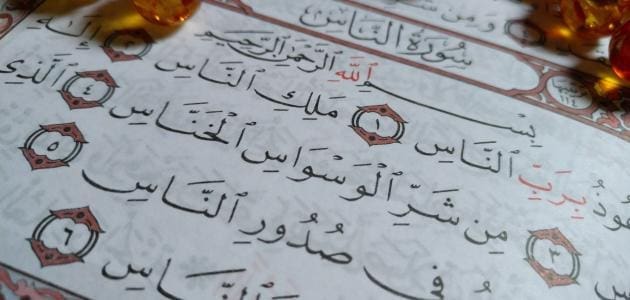 وَمِن شَرِّ
سُورَةُ النَّاسِ
بِسْمِ ٱللَّهِ ٱلرَّحْمَٰنِ ٱلرَّحِيمِ
عُوذُ بِرَبِّ ٱلنَّاسِ ١ مَلِكِ ٱلنَّاسِ ٢ إِلَٰهِ
٣ مِن شَرِّ ٱلْوَسْوَاسِ ٱلْخَنَّاسِ ٤ ٱلَّذِى
فِى صُدُورِ ٱلنَّاسِ ٥
ٱلنَّاسِ ٦